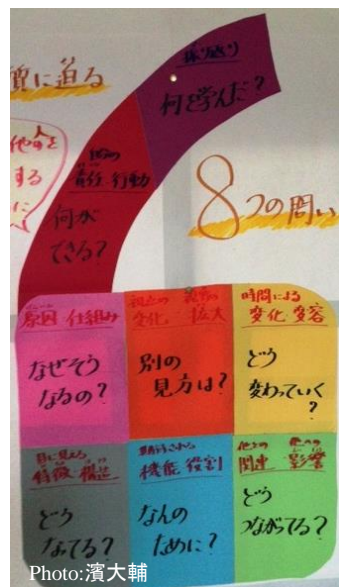 質に迫る
他者と
する
に
振り返り
何を学んだ?
責任・行動
何が
できる?
8つの問い
原因・仕組み
なぜそう
なるの?
視点の 視野の
変化・拡大
別の
見方は?
時間による
変化・変容
どう
変わっていく
?
目に見える
特徴・構造
どう
なってる?
期待される
機能・役割
なんの
ために?
関連・影響
どう
つながってる?
Photo:濱大輔